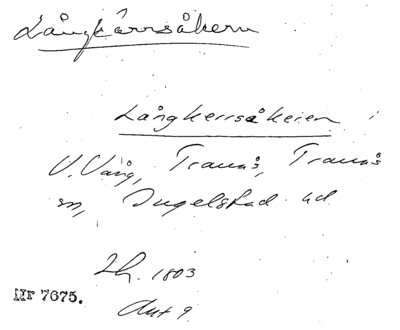 Långkärrsåkern
Långkerrsåkeren
V. Vång, Tranås, Tranås
sn, Ingelstad hd
Lh. 1803
Nr 7675.
Akt 9